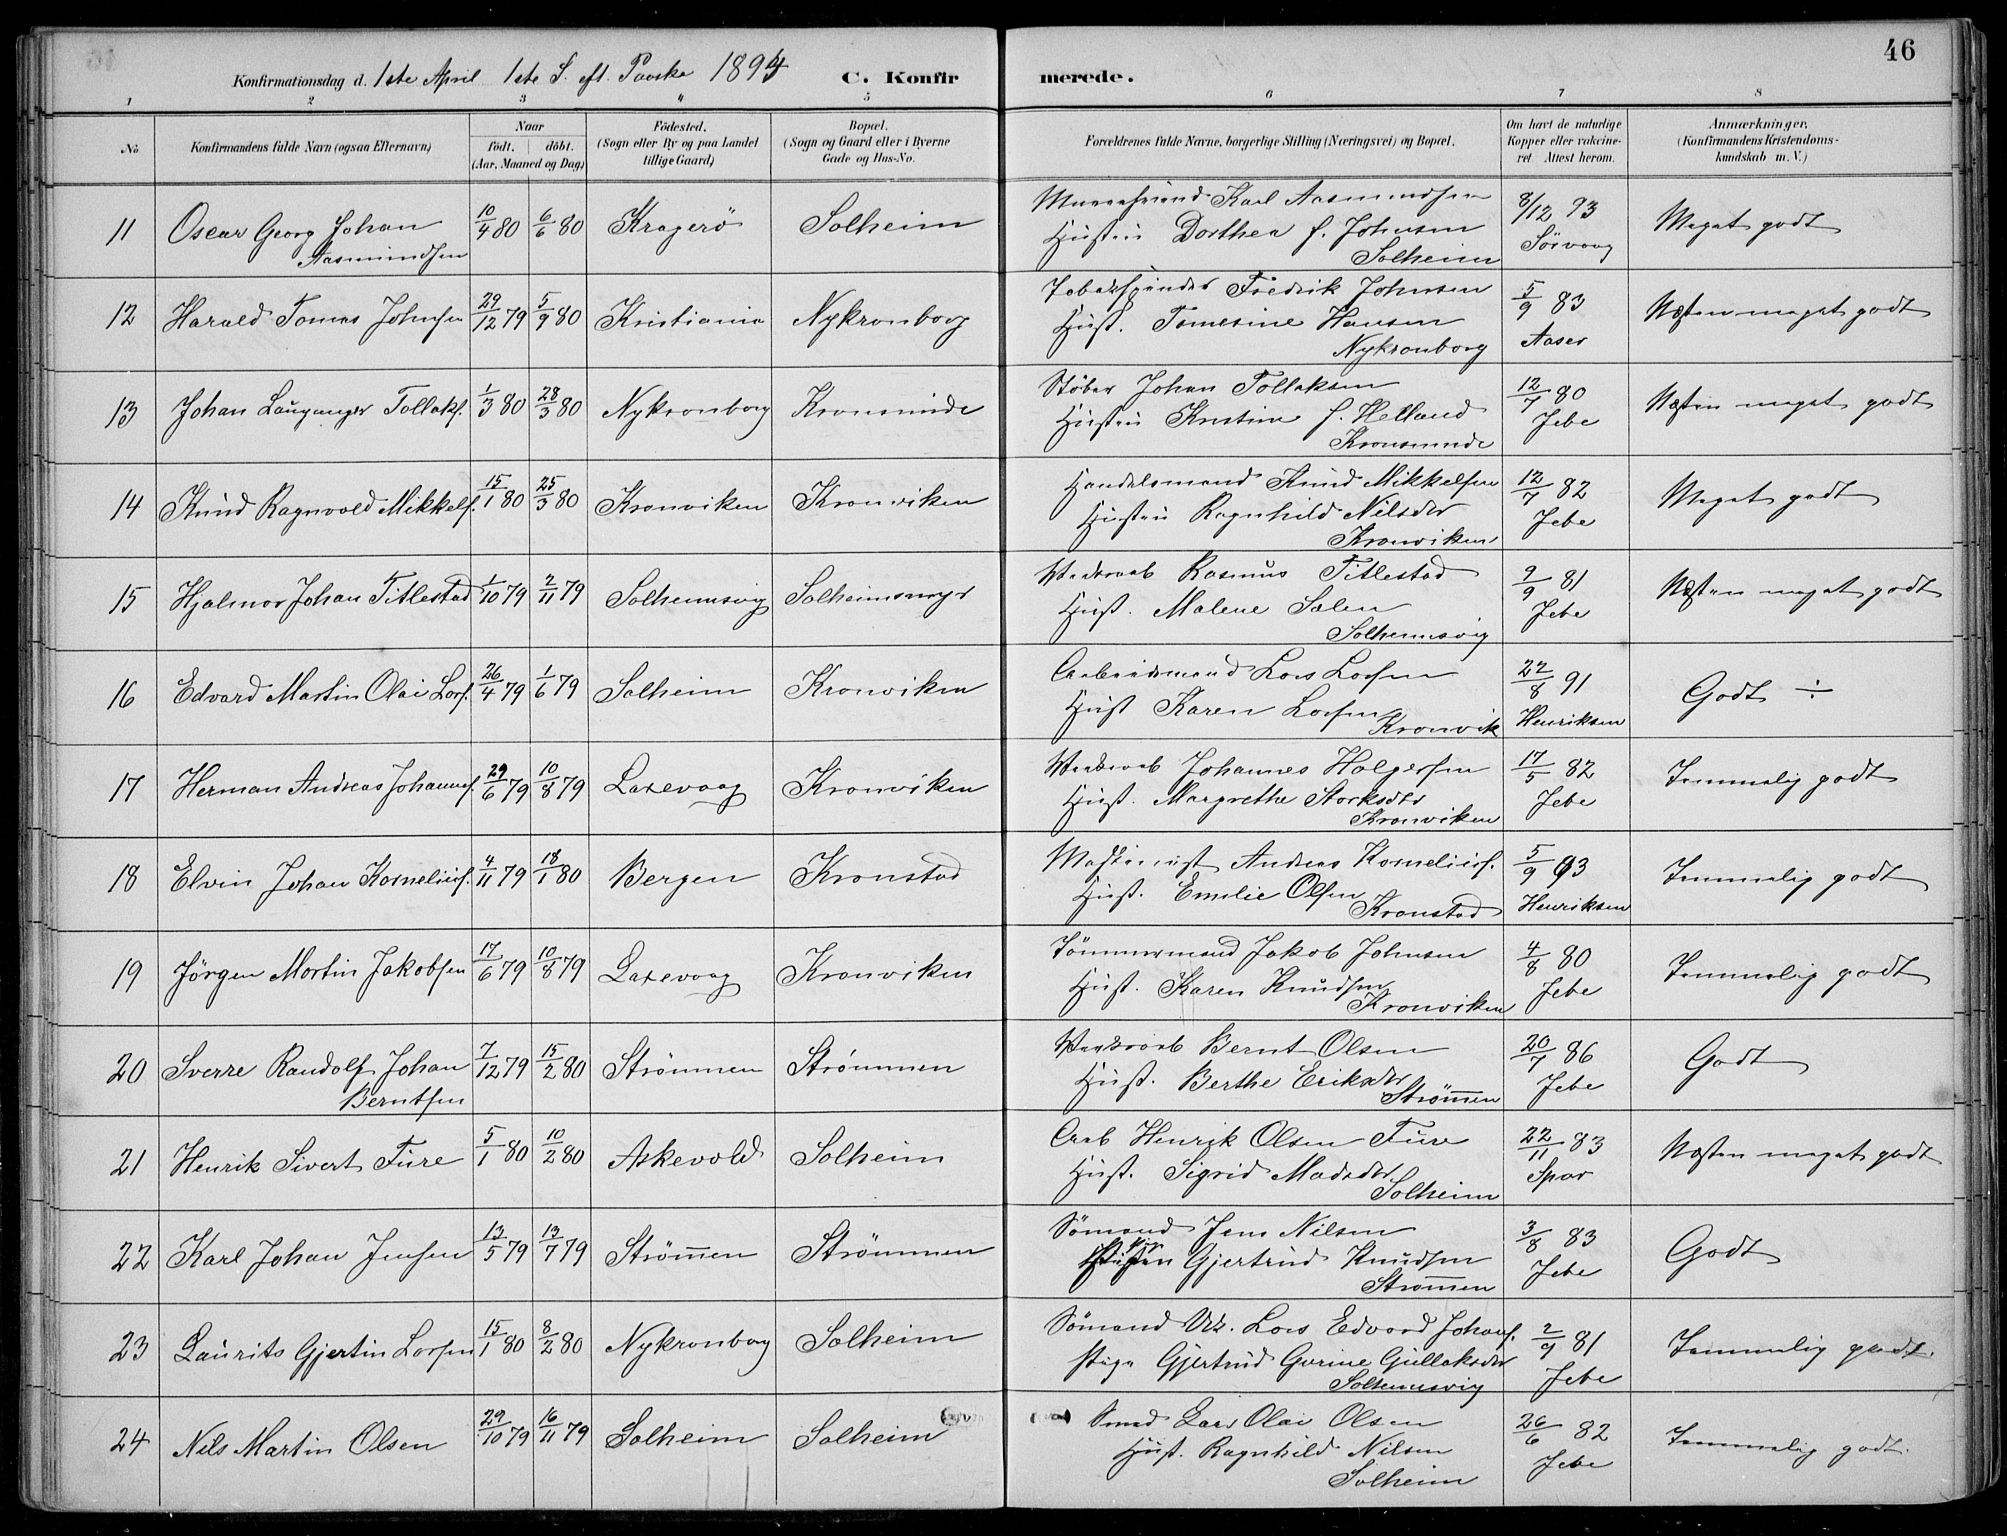 46
Konfirmationsdag d. 1ste April 1ste S. eft. Paaske 1894 C. Konfirmerede.
1 2 3 4 5 6 7 8
No
Konfirmandens fulde Navn (ogsaa Efternavn)
Naar
födt. döbt.
(Aar, Maaned og Dag)
Födested.
(Sogn eller By og paa Landet
tillige Gaard)
Bopæl.
(Sogn og Gaard eller i Byerne
Gade og Hus-No.
Forældrenes fulde Navne, borgerlige Stilling (Næringsvei) og Bopæl.
Om havt de naturlige
Kopper eller vakcine-
ret. Attest herom.
Anmærkninger.
(Konfirmandens Kristendoms-
kundskab m. V.)
11 Oscar Georg Johan 10/4 80 6/6 80 Kragerö Solheim Karl Aasmundsen 8/12 93 Meget godt
Aasmundsen Hustru Dorthea f. Johnsen Sörvaag
Solheim
12 Harald Tomas Johnsen 29/12 79 5/9 80 Kristiania Nykronborg Tobakspinder Fredrik Johnsen 5/9 83 Næsten meget godt
Hust. Tomesine Hansen Aaser
Nykronborg
13 Johan Lauganger Tollaks. 1/3 80 28/3 80 Nykronborg Kronsminde Støber Johan Tollaksen 12/7 80 Næsten meget godt
Hustru Kristine f. Helland Jebe
Kronsminde
14 Knud Ragnvald Mikkels. 15/1 80 25/3 80 Kronviken Kronviken Handelsmand Knud Mikkelsen 12/7 82 Meget godt
Hustru Ragnhild Nilsdtr Jebe
Kronviken
15 Hjalmar Johan Titlestad 1/10 79 2/11 79 Solheimsvig Solheimsmyr Værksarb Rasmus Titlestad 9/9 81 Næsten meget godt
Hust. Malene Sælen Jebe
Solheimsvig
16 Edvard Martin Olai Lars. 26/4 79 1/6 79 Solheim Kronviken Arbeidsmand Lars Larsen 22/8 91 Godt ÷
Hust Karen Larsen Henriksen
Kronvik
17 Herman Andreas Johannes. 29/6 79 10/8 79 Laxevaag Kronviken Værksarb Johannes Holgersen 17/5 82 Temmelig godt
Hust. Margrethe Storksdtr Jebe
Kronviken
18 Elvin Johan Kornelius. 4/11 79 18/1 80 Bergen Kronstad Maskinist Andreas Kornelius. 5/9 93 Temmelig godt
Hust. Emilie Olsen Henriksen
Kronstad
19 Jörgen Martin Jakobsen 17/6 79 10/8 79 Laxevaag Kronviken Tömmermand Jakob Johnsen 4/8 80 Temmelig godt
Hust. Karen Knudsen Jebe
Kronviken
20 Sverre Randolf Johan 7/12 79 15/2 80 Strömmen Strömmen Værksarb Bernt Olsen 20/7 86 Godt
Berntsen Hust. Berthe Eriksdtr Jebe
Strömmen
21 Henrik Sivert Füre 5/1 80 10/2 80 Askevold Solheim Arb Henrik Olsen Füre 22/11 83 Næsten meget godt
Hust. Sigrid Madsdtr Spar
Solheim
22 Karl Johan Jensen 13/5 79 13/7 79 Strömmen Strömmen Sömand Jens Nilsen 3/8 83 Godt
Gjertrud Knudsen Jebe
Strömmen
23 Laurits Gjertin Larsen 15/1 80 8/2 80 Nykronborg Solheim Sömand Uk. Lars Edvard Johans. 2/9 81 Temmelig godt.
Pige Gjertrud Gurine Gullaksdtr Jebe
Solheimsvig
24 Nils Martin Olsen 29/10 79 16/11 79 Solheim Solheim Smed Lars Olai Olsen 26/6 82 Temmelig godt.
Hust. Ragnhild Nilsen Jebe
Solheim